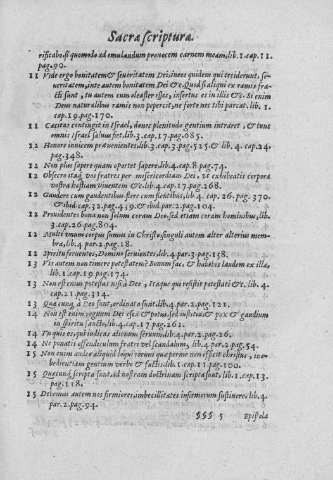 Sacra scriptura.
ristabo. si quomodo ad emulandum prouocem carnem meam, lib. 1. cap. 11.
pag. 90.
11 Vide ergo bonitatem & seueritatem Dei. in eos quidem qui ceciderunt, se-
ueritatem, in te autem bonitatem Dei &c. Quod si aliqui ex ramis fra-
cti sunt, tu autem cum oleaster esses, insertus es in illis &c. Si enim
Deus naturalibus ramis non pepercit, ne forte nec tibi parcat. lib. 1.
cap. 19. pag. 170.
11 Caecitas contingit in Israel, donec plenitudo gentium intraret, & tunc
omnis Israel saluus fiet, lib. 3. cap. 17. pag. 685.
12 Honore inuicem praeuenientes, lib. 3. cap. 3. pag. 525. & lib. 4. cap. 24.
pag. 348.
12 Non plus sapere quam oportet sapere, lib. 4. cap. 8. pag. 74.
12 Obsecro itaq. vos fratres per misericordiam Dei, vt exhibeatis corpora
vestra hostiam viuentem &c. lib. 4. cap. 17. pag. 268.
12 Gaudere cum gaudentibus flere cum flentibus, lib. 4. cap. 26. pag. 370.
& ibid. cap. 32. pag. 419. & ibid. par. 2. pag. 104.
12 Prouidentes bona non solum coram Deo sed etiam coram hominibus, lib.
3. cap. 26. pag. 804.
12 Multi vnum corpus sumus in Christo, singuli autem alter alterius mem-
bra, lib. 4. par. 2. pag. 18.
12 Spiritu feruentes, Domino seruientes, lib. 4. par. 3. pag. 158.
13 Vis autem non timere potestatem? Bonum fac, & habebis laudem ex illa,
lib. 1. cap. 19. pag. 174.
13 Non est enim potestas nisi à Deo, Itaque qui resistit potestati &c. lib. 4.
cap. 21. pag. 314.
13 Quae autem à Deo sunt, ordinata sunt, lib. 4. par. 2. pag. 121.
14 Non est enim regnum Dei esca & potus, sed iustitia & pax & gaudium
in spiritu sancto, lib. 4. cap. 17. pag. 262.
14 Tu quis es, qui iudicas alienum seruum, lib. 4. par. 2. pag. 26.
14 Ne ponatis offendiculum fratri vel scandalum, lib. 4. par. 2. pag. 54.
15 Non enim audeo aliquid loqui eorum quae per me non efficit Christus, in o-
bedientiam gentium verbo & factis, lib. 1. cap. 11. pag. 100.
15 Quaecunq. scripta sunt, ad nostram doctrinam scripta sunt, lib. 1. cap. 13.
pag. 118.
15 Debemus autem nos firmiores, imbecillitates infirmorum sustinere, lib. 4.
par. 2. pag. 94.
§§§ 5 Epistola